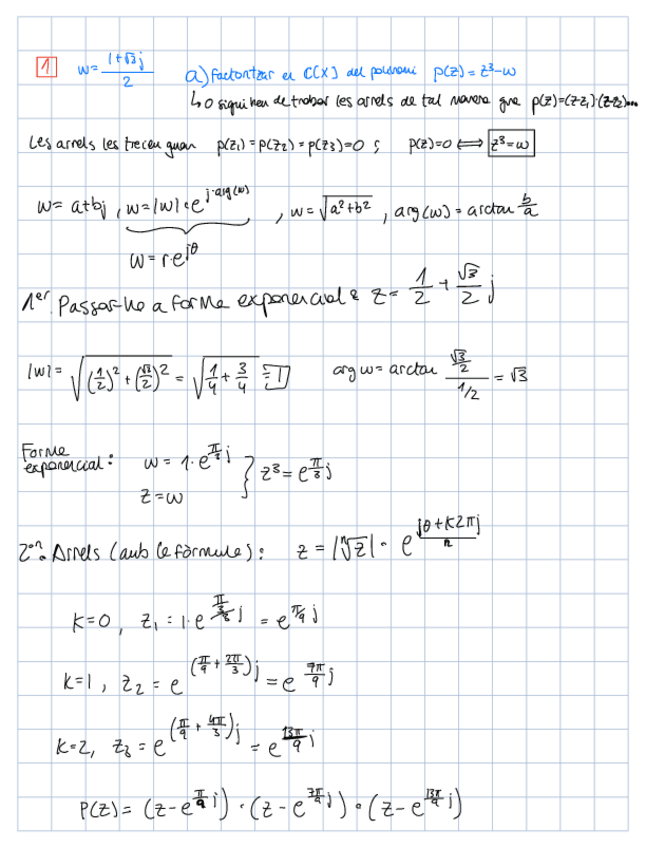 1 w = (1+√3 j)/2 a) Factoritzar en C[X] del polinomi p(z) = z³-w
↳ o sigui hem de trobar les arrels de tal manera que p(z)=(z-z₁)·(z-z₂)...
Les arrels les treiem quan p(z₁) = p(z₂) = p(z₃) = 0 ; p(z)=0 ⟺ z³=w
w = a+bj , w = |w|·e^(j·arg(w)) , w = √(a²+b²) , arg(w) = arctan b/a
w = r·e^(jθ)
1er. Passar-ho a forma exponencial: z = 1/2 + √3/2 j
|w| = √((1/2)² + (√3/2)²) = √(1/4 + 3/4) = 1 arg w = arctan (√3/2)/(1/2) = √3
Forma exponencial: w = 1·e^(π/3 j) } z³ = e^(π/3 j)
z = w
2on. Arrels (amb la fórmula): z = |ⁿ√z| · e^((jθ + K2πj)/n)
K=0, z₁ = 1·e^(π/3/3 j) = e^(π/9 j)
K=1, z₂ = e^((π/9 + 2π/3)j) = e^(7π/9 j)
K=2, z₃ = e^((π/9 + 4π/3)j) = e^(13π/9 j)
P(z) = (z - e^(π/9 j)) · (z - e^(7π/9 j)) · (z - e^(13π/9 j))